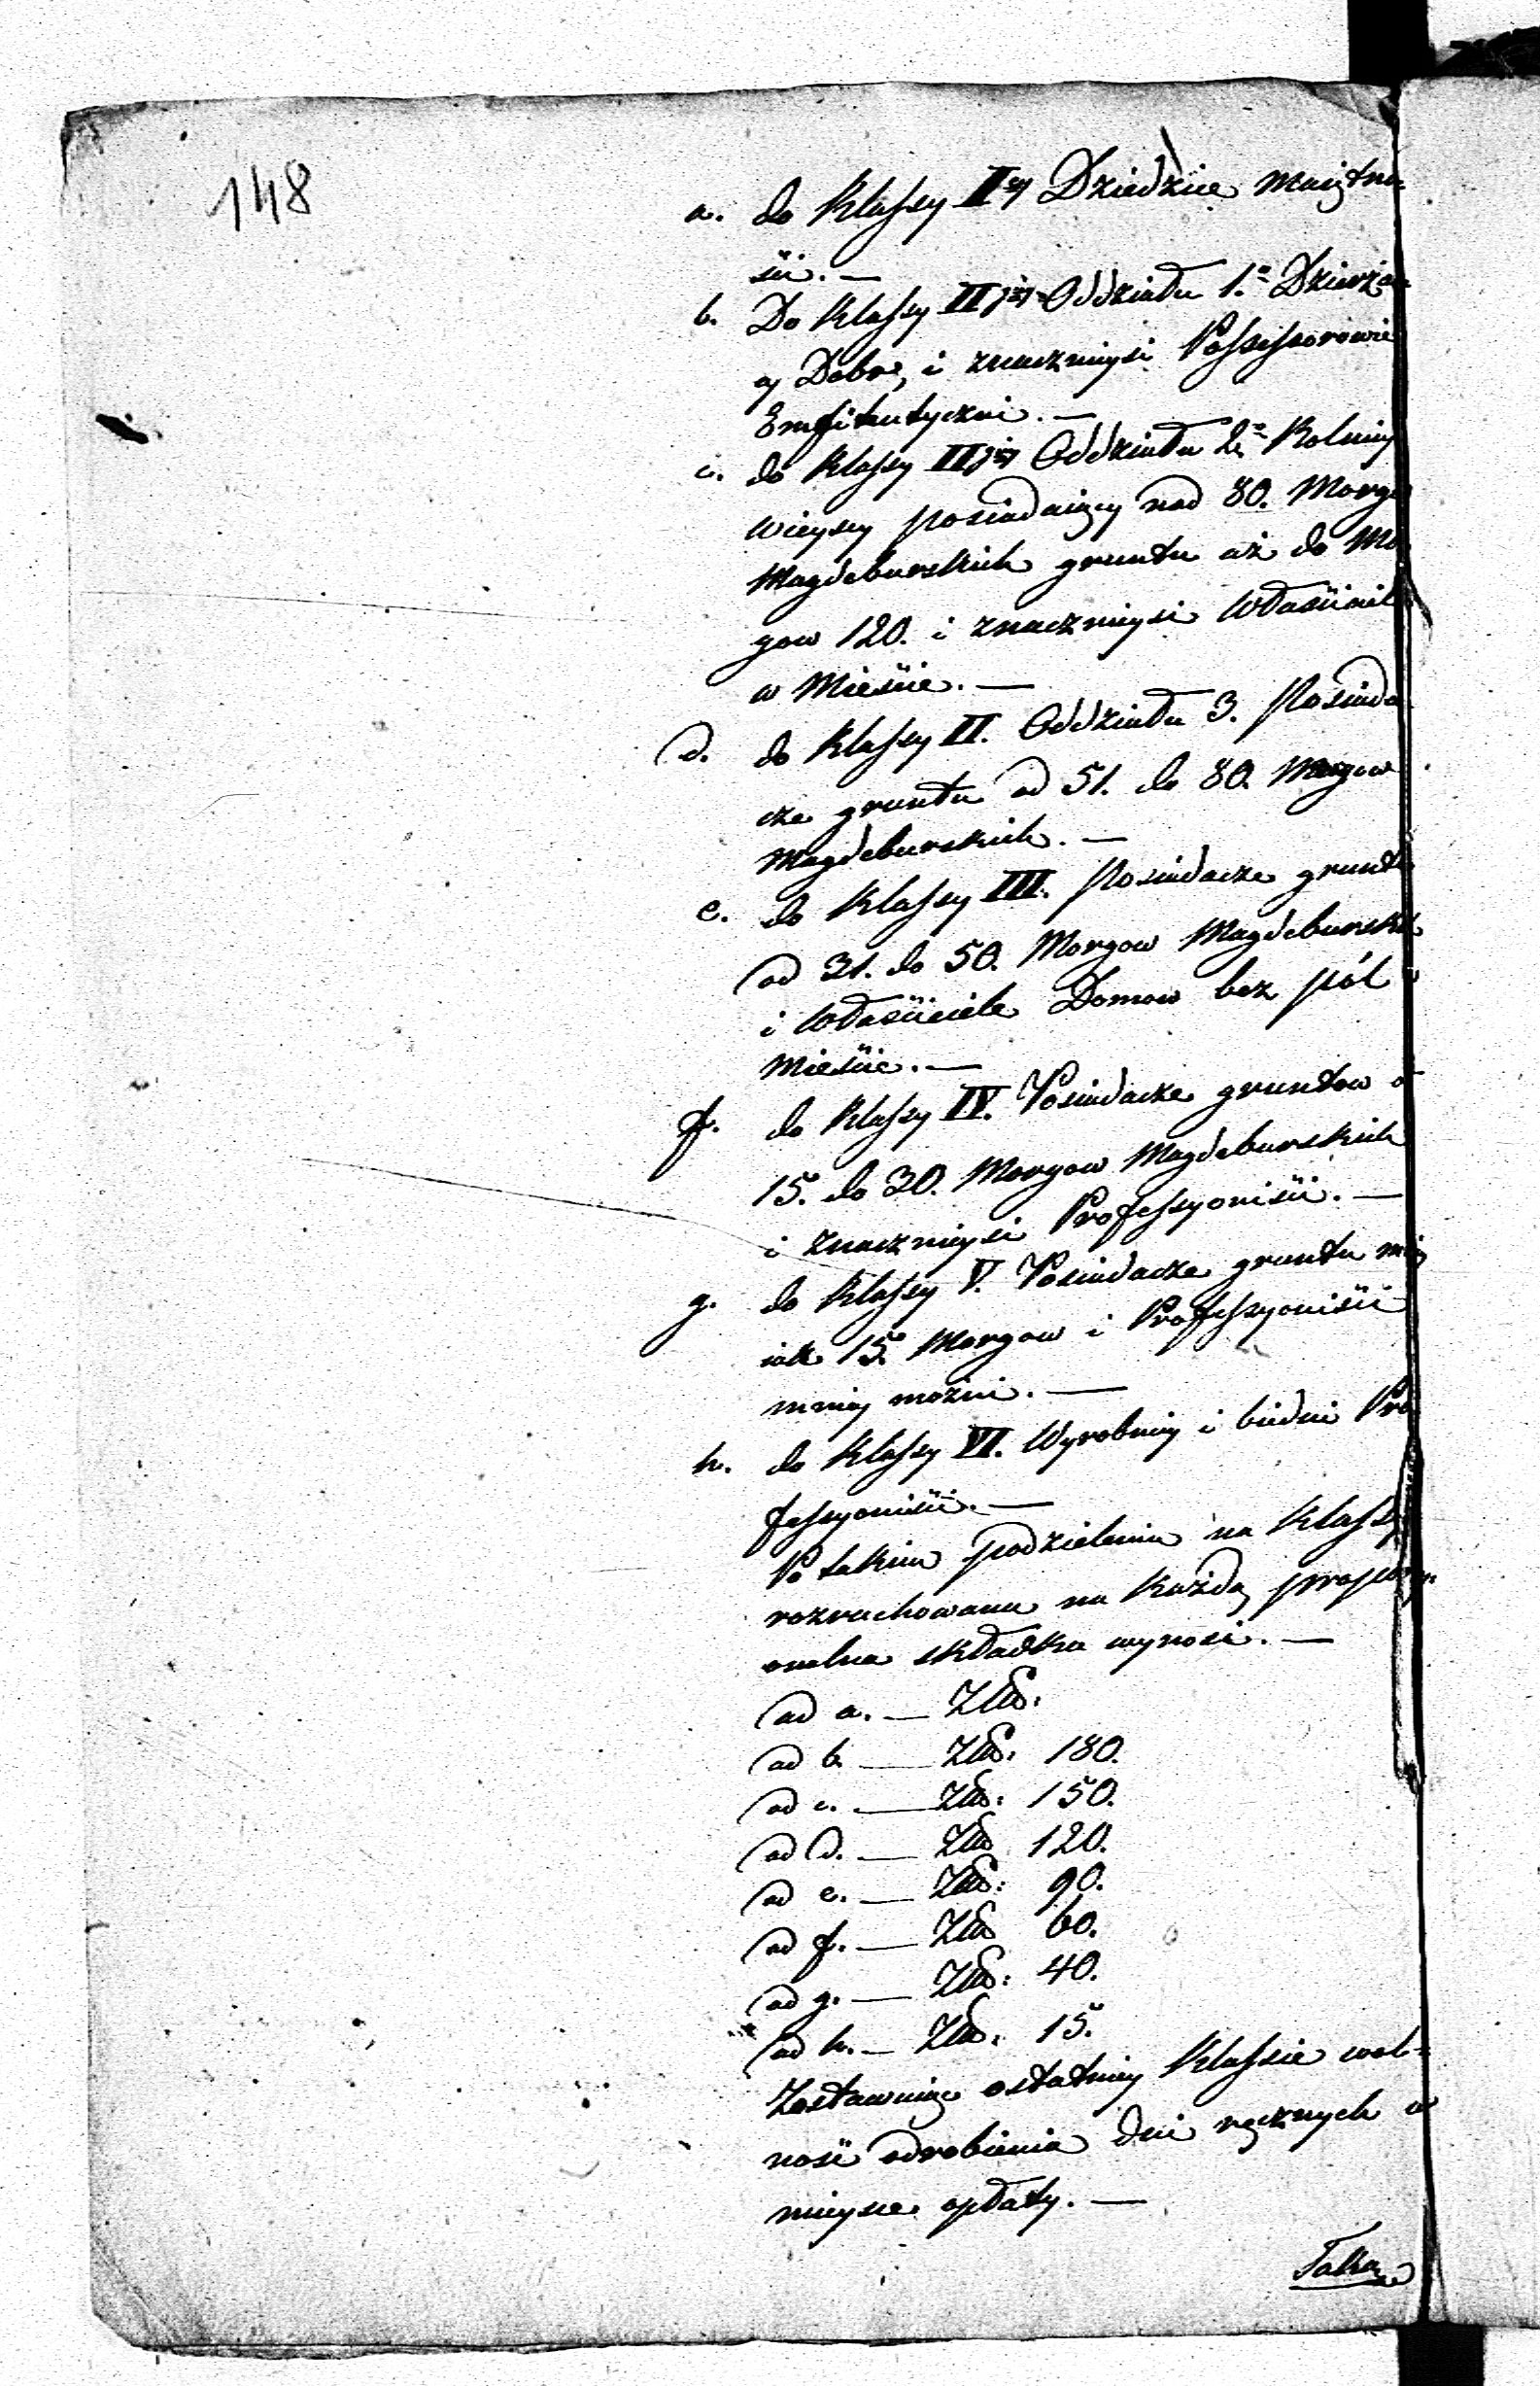 148
a. do Klassy IIey Dziedzice maiętno-
ści. —
b. Do Klassy IIgiey Oddziału 1.º Dzierżaw-
cy Dobr, i znacznieysi Possessorowie
Emfiteutyczni. —
c. do Klassy IIgiey Oddziału 2º Rolnicy
wieyscy posiadaiący nad 80. Morgo
Magdeburskich gruntu aż do Mo
gow 120. i znacznieysi Właścicil
w Mieście. —
d. do Klassy II. Oddziału 3. Posiada
cze gruntu od 51. do 80. Morgow
Magdeburskich. —
e. do Klassy III. Posiadacze gruntu
od 31. do 50. Morgow Magdebursk
i Właściciele Domow bez pól w
mieście. —
f. do Klassy IV. Posiadacze gruntow o
15. do 30. Morgow Magdeburskich
i znacznieysi Professyoniści. —
g. do Klassy V. Posiadacze gruntu mniey
iak 15. Morgow i Professyoniści
mniey możni. —
h. do Klassy VI. Wyrobnicy i biedni Pro
fessyoniści. —
Po takim podzieleniu na Klassy
rozrachowana na każdą proporcy
onalna składka wynosi. —
ad a. — Złł.
ad b. — Złł. 180.
ad c. — Złł: 150.
ad d. — Złł 120.
ad e. — Złł: 90.
ad f. — Złł 60.
ad g. — Złł: 40.
ad h. — Złł. 15.
Zostawuiąc ostatniey Klassie wol-
ność odrobienia dni ręcznych w
mieysce opłaty. —
Taka